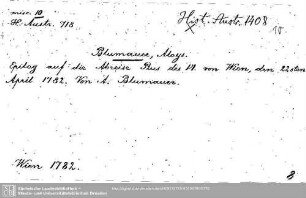 misc. 10
H. Austr. 718.
Hist. Austr. 1408
10
Blumauer, Aloys.
Epilog auf die Abreise Pius des VI. von Wien, den 22sten
April 1782. Von A. Blumauer.
Wien 1782.
8
Sächsische Landesbibliothek -
Staats- und Universitätsbibliothek Dresden